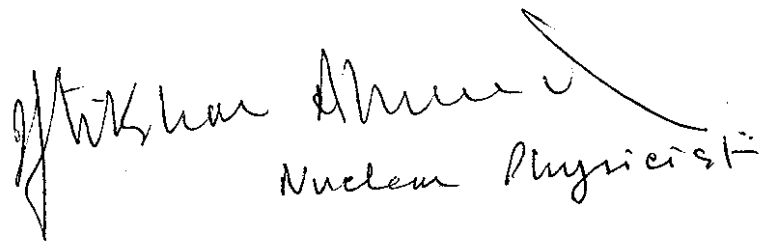 Iftikhar Ahmed
Nuclear Physicist